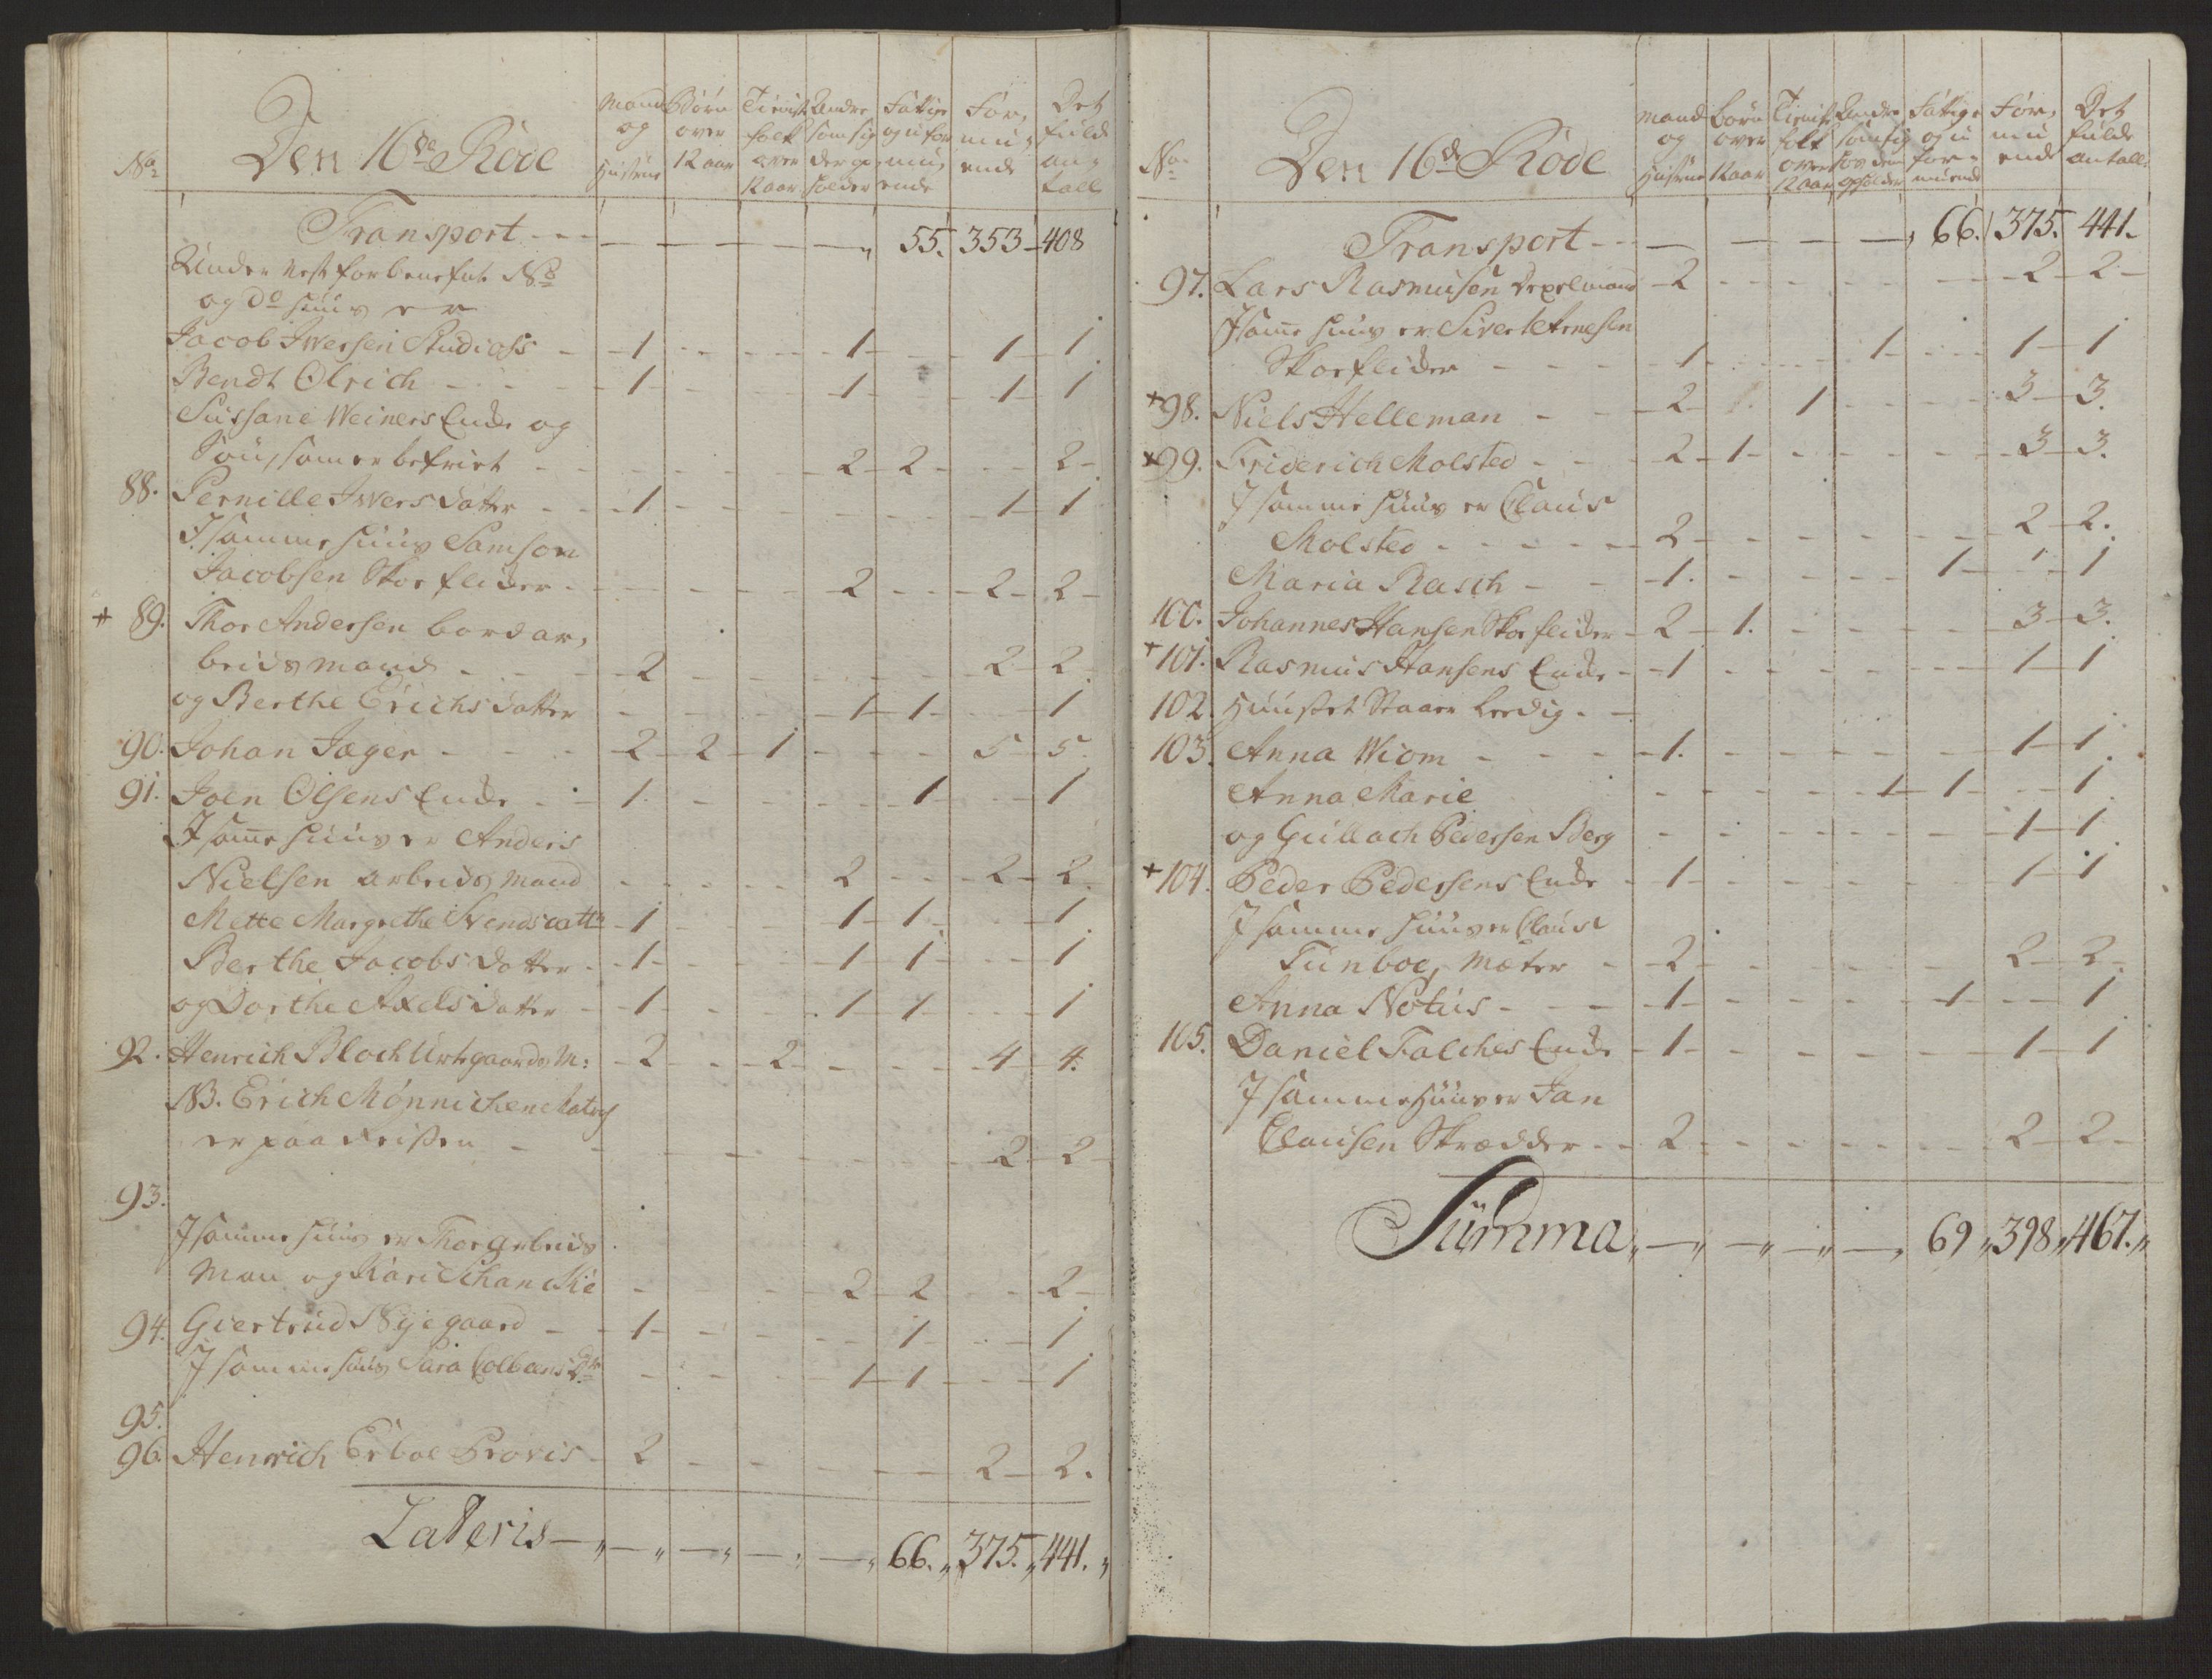 No
Den 16de Rode
Mand og Hustrue
Børn over 12 aar
Tienist folk over 12 aar
Andre som sig
Fattige og ufor mu, ende
For, mu, ende
Det fulde an, tall
Transport - - - - - - - „ 55. 353 - 408
Under Næst forbenefnte No
og do Huus er
Jacob Iversen Studioss - 1 - - - 1 - - 1 - 1.
Bendt Olrich - - - 1 - - - 1 - - 1 - 1
Sussane Weiners Enke og
Søn, som er befriet - - - - - 2 - 2 - - - 2 -
88. Pernille Ivers datter - - 1 - - - - - - 1 - 1
I samme Huus Samson
Jacobsen Skoeflicker - - - - - 2 - - - 2 - 2 -
+ 89. Thor Andersen bordar,
beids mand - - - 2 - - - - - 2 - 2.
og Berthe Erichs datter - - - - 1 - 1 - - - 1
90. Johan Jæger - - - 2 - 2 - 1 - - - - 5 - 5.
91. Joen Olsens Enke - - 1. - - - - 1 - - - 1
I samme Huus er Anders
Nielsen arbeids mand - - - - - 2 - - - 2 - 2
Mette Margrethe Svends datter - 1 - - - 1 - 1. - - - 1.
Berthe Jacobs datter - 1 - - - 1 - 1 - - - 1
og Dorthe Axels datter - 1 - - - 1 - 1 - - - 1
92. Henrich Bloch Urtegaards M: - 2 - - 2 - - - - 4 - 4.
NB. Erich Mønnichen Matros
er paa Reisen - - - - - - - 2 - 2 -
93.
I samme Huus er Thor arbeids
Man og Kari Schanckie - - - - 2 - 2 - - - 2 -
94. Giertrud Nyegaard - - 1 - - - - 1 - - - 1
I samme Huus Sara Colbens Dr - - - - 1 - 1 - - - 1
95.
96. Henrich Erboe Provis - 2 - - - - - 2 - 2.
Lateris - „ - „ - „ - „ - „ 66. „ 375. „ 441. „
No
Den 16de Rode
Mand og Hustrue
Børn over 12 aar
Tienist folk over 12 aar
Andre som sig opholder
Fattige og u for- muende
For, mu ende
Det fulde antall
Transport - - - - - - - , 66. 375. 441.
97. Lars Rasmusen - 2 - - - - - - 2 - 2 -
I samme Huus er Sivert Arnesen
Skoeflicker - - - - 1 - - - 1 - - - 1 - 1
+ 98. Niels Helleman - - 2 - . 1 - - - - 3 - 3.
+ 99. Friderich Molsted - - - 2 - 1 - - - - - 3 - 3.
I samme Huus er Claus
Molsted - - - - - 2 - - - - - - 2 - 2.
Maria Rasch - - - 1. - - - - 1 - - - 1
100. Johannes Hansen Skoeflicker - 2 - 1. - - - - 3 - 3.
+ 101. Rasmus Hansens Enke - - 1 - - - - - - 1 - 1
102. Huuset Staar Leedig. -
103. Anna Wiom - - - - 1. - - - - - - 1 - 1.
Anna Marie - - - - 1 - 1 - - - 1.
og Gullach Pedersen Berg - - - - - - 1 - 1.
+ 104. Peder Pedersens Enke - 1 - - - - - - 1 - 1
I samme Huus er Claus
Tunboe, Mæter - - 2 - - - - - - 2 - 2 -
Anna Notius - - - 1 - - - - - 1 - - - 1
105. Daniel Falches Enke - 1 - - - - - - 1 - 1
I samme Huus er Jan
Clausen Skrædder - - 2 - - - - - - 2 - 2 -
Summa „ - „ - „ - „ - , 69 „ 398 „ 467. „